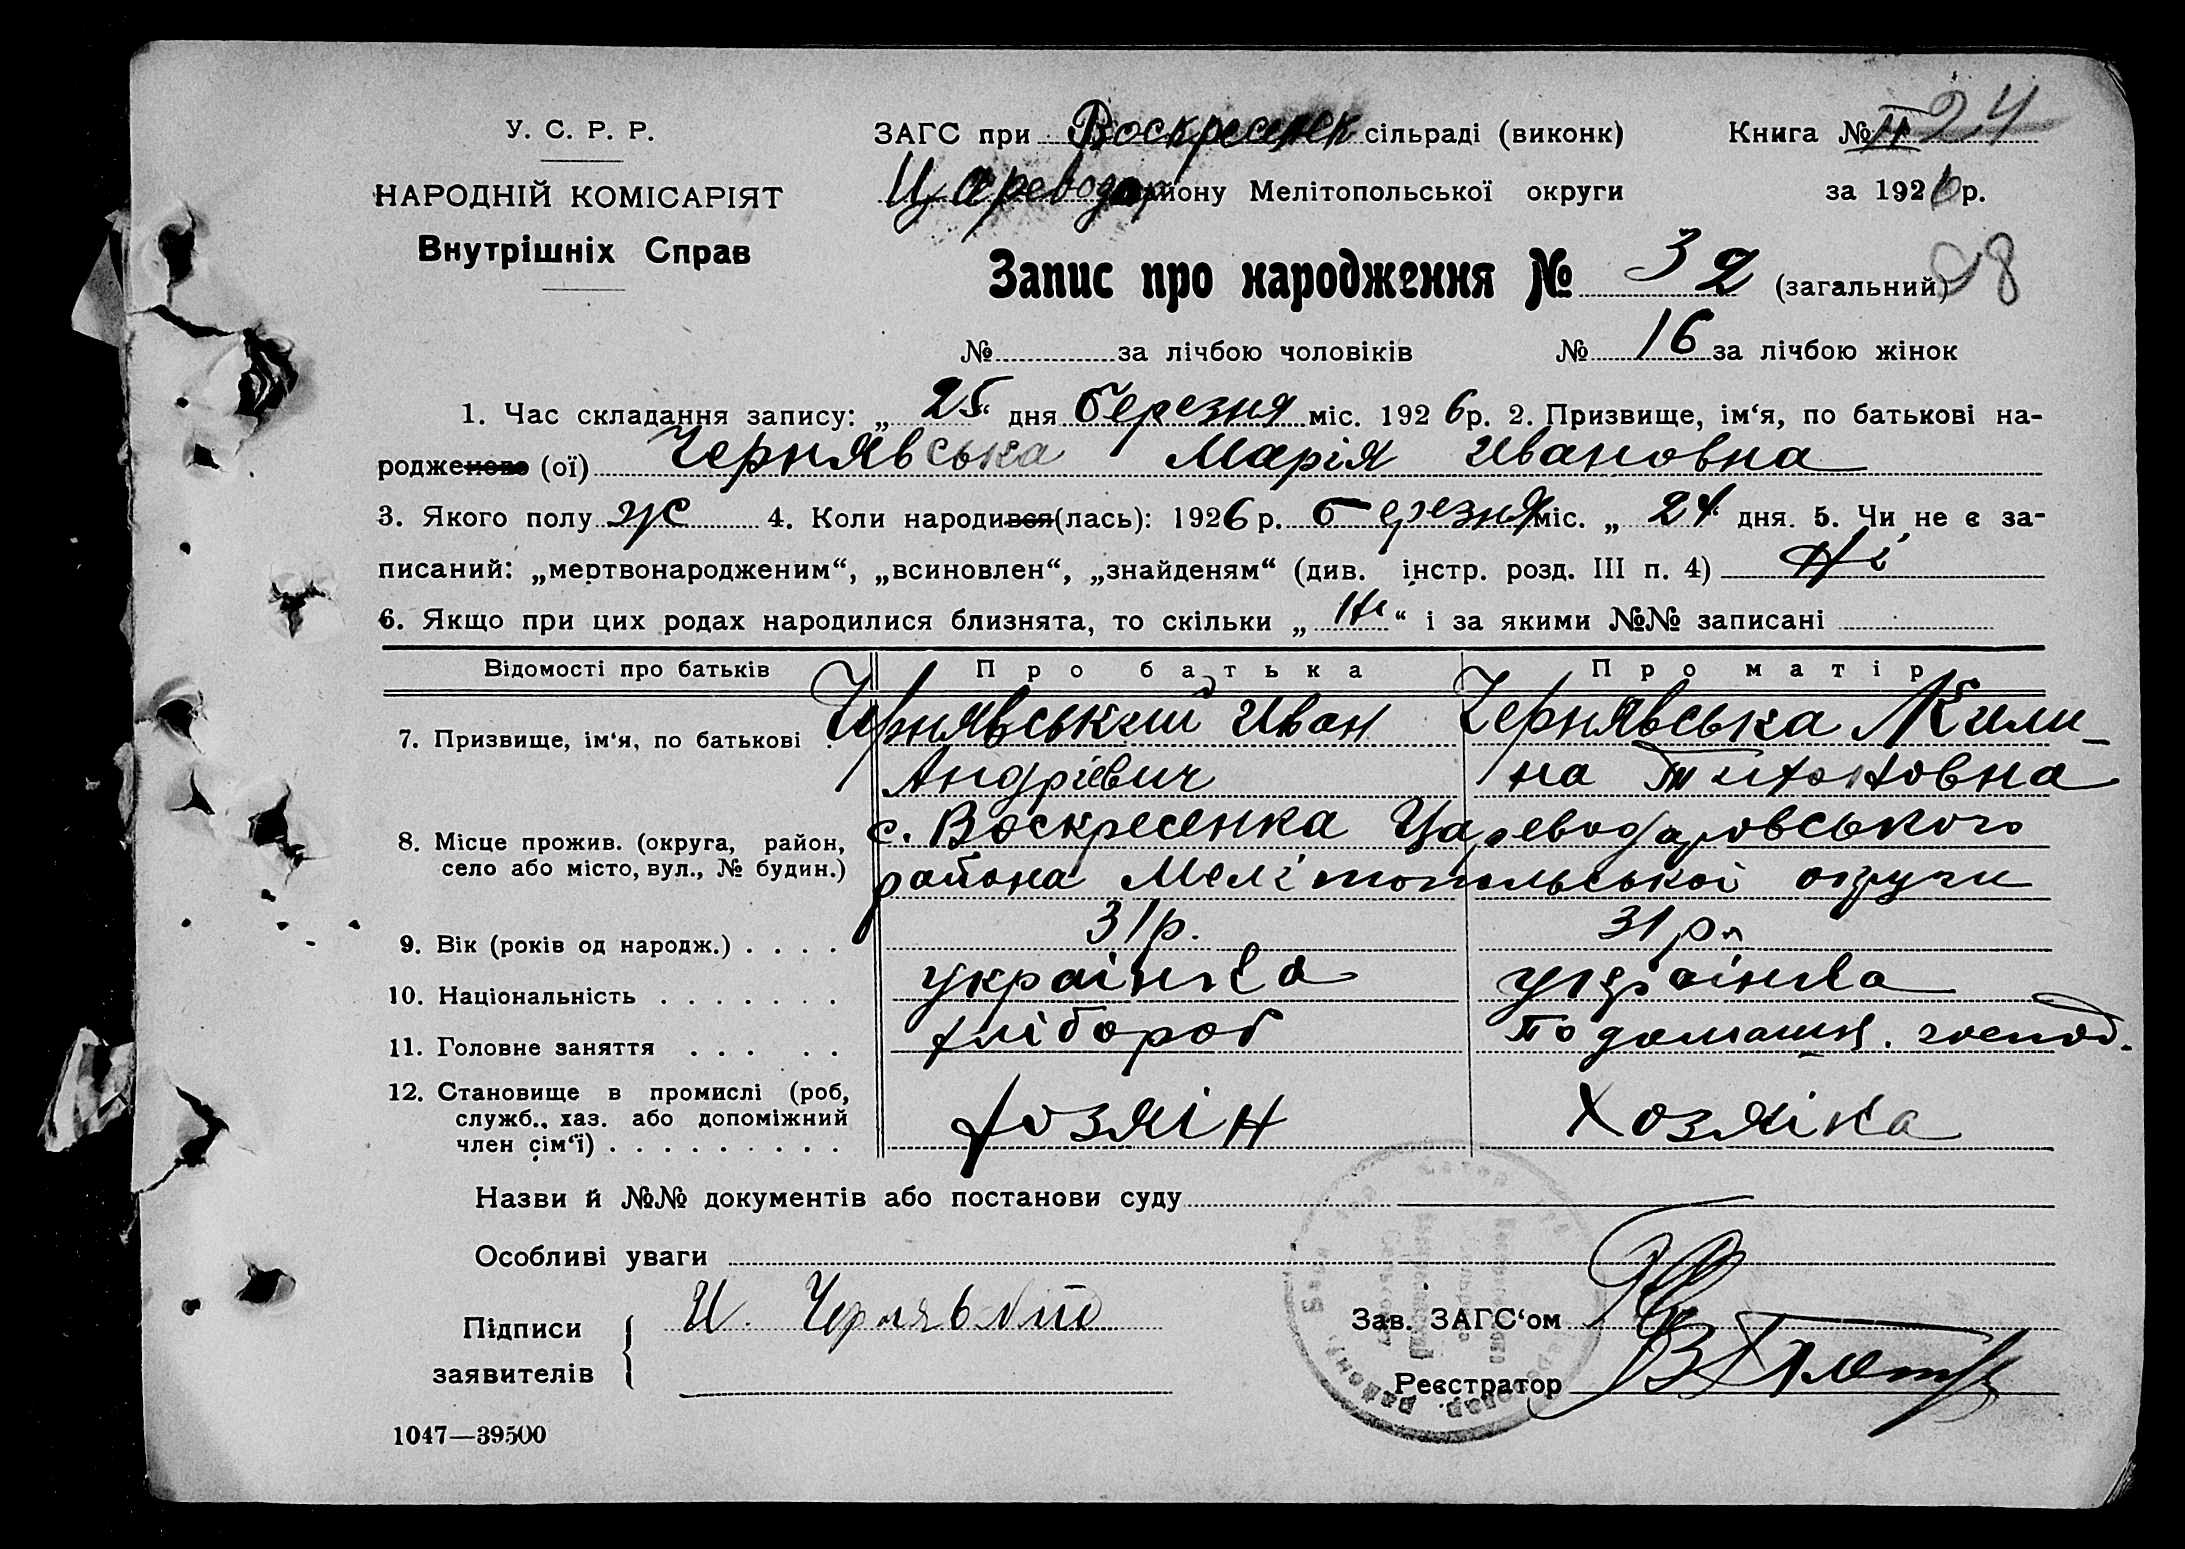 У. С. Р. Р.
НАРОДНІЙ КОМІСАРІЯТ
Внутрішніх Справ
ЗАГС при Воскресенск сільраді (виконк)
Царводар району Мелітопольської округи
Книга № II 24
за 1926 р.
Запис про народження № 32 (загальний) 28
№ за лічбою чоловіків № 16 за лічбою жінок
1. Час складання запису: „25“ дня березня міс. 1926 р. 2. Призвище, ім‘я, по батькові на-
родженого (ої) Чернявська Марія Ивановна
3. Якого полу ж 4. Коли народився(лась): 1926 р. березня міс. „24“ дня. 5. Чи не є за-
писаний: „мертвонародженим“, „всиновлен“, „знайденям“ (див. інстр. розд. III п. 4) Ні
6. Якщо при цих родах народилися близнята, то скільки „Ні“ і за якими №№ записані
Відомості про батьків Про батька Про матір
7. Призвище, ім‘я, по батькові . Чернявський Иван Чернявська Кили-
Андрієвич на Тихоновна
8. Місце прожив. (округа, район,
село або місто, вул., № будин.)
с. Воскресенка Цареводаровського
района Мелітопольської округи
9. Вік (років од народж.) . . . . 31 р. 31 р.
10. Національність . . . . . . . українка українка
11. Головне заняття . . . . . хлібороб по домашн. господ.
12. Становище в промислі (роб,
служб., хаз. або допоміжний
член сім‘ї) . . . . . . . . . хозяін хозяіка
Назви й №№ документів або постанови суду
Особливі уваги
Підписи
заявителів
И. Чернявский
Зав. ЗАГС‘ом
Реєстратор
1047—39500